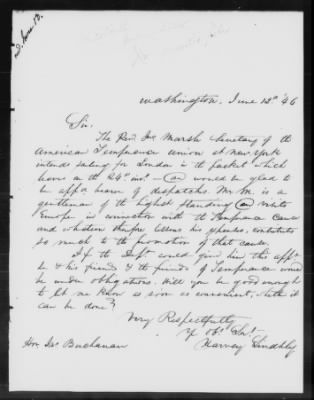 Washington, June 12" '46
Sir.
The Revd Jno Marsh Secretary of the
American Temperance Union at New York
intends sailing for London in the packet which
leaves on the 24th inst. — and would be glad to
be appd bearer of dispatches. Mr M. is a
gentleman of the highest standing and visits
Europe in connexion with the Temperance cause
and whatever therefore
so much to the promotion of that cause.
If the Dept could give him this appt
he & his friends & the friends of Temperance would
be under obligations. Will you be good enough
to let me know as soon as convenient, whether it
can be done?
Very Respectfully
Yr Obt Svt
Harvey Lindsly
Hon. Jas Buchanan